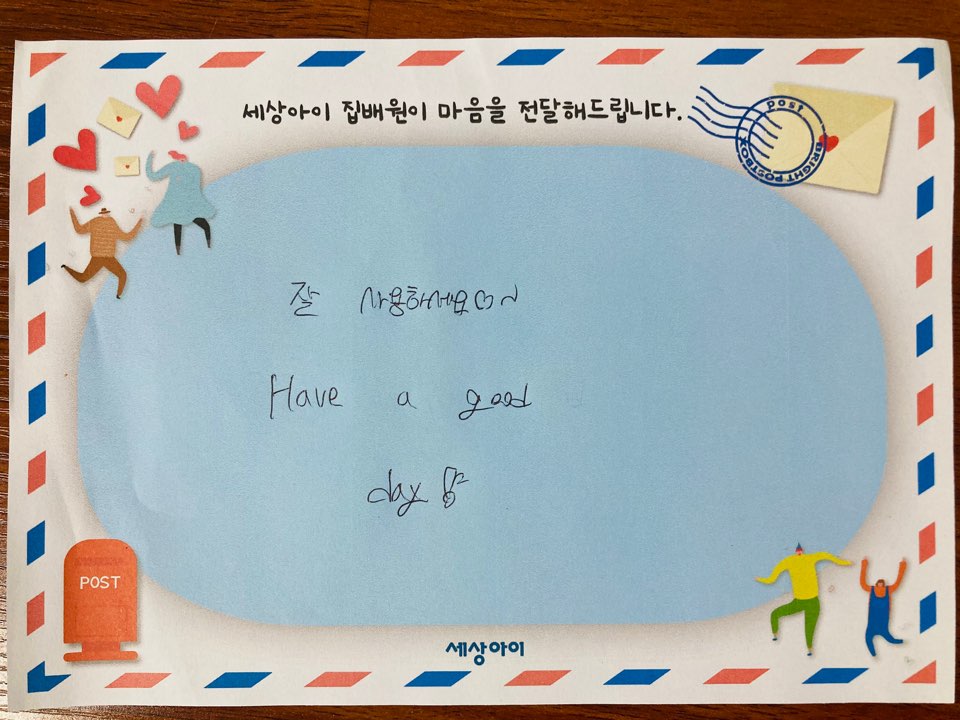 세상아이 집배원이 마음을 전달해드립니다.
post
BRIGHT POSTBOX
잘 사용하세요♡~
Have a good
day
POST
세상아이